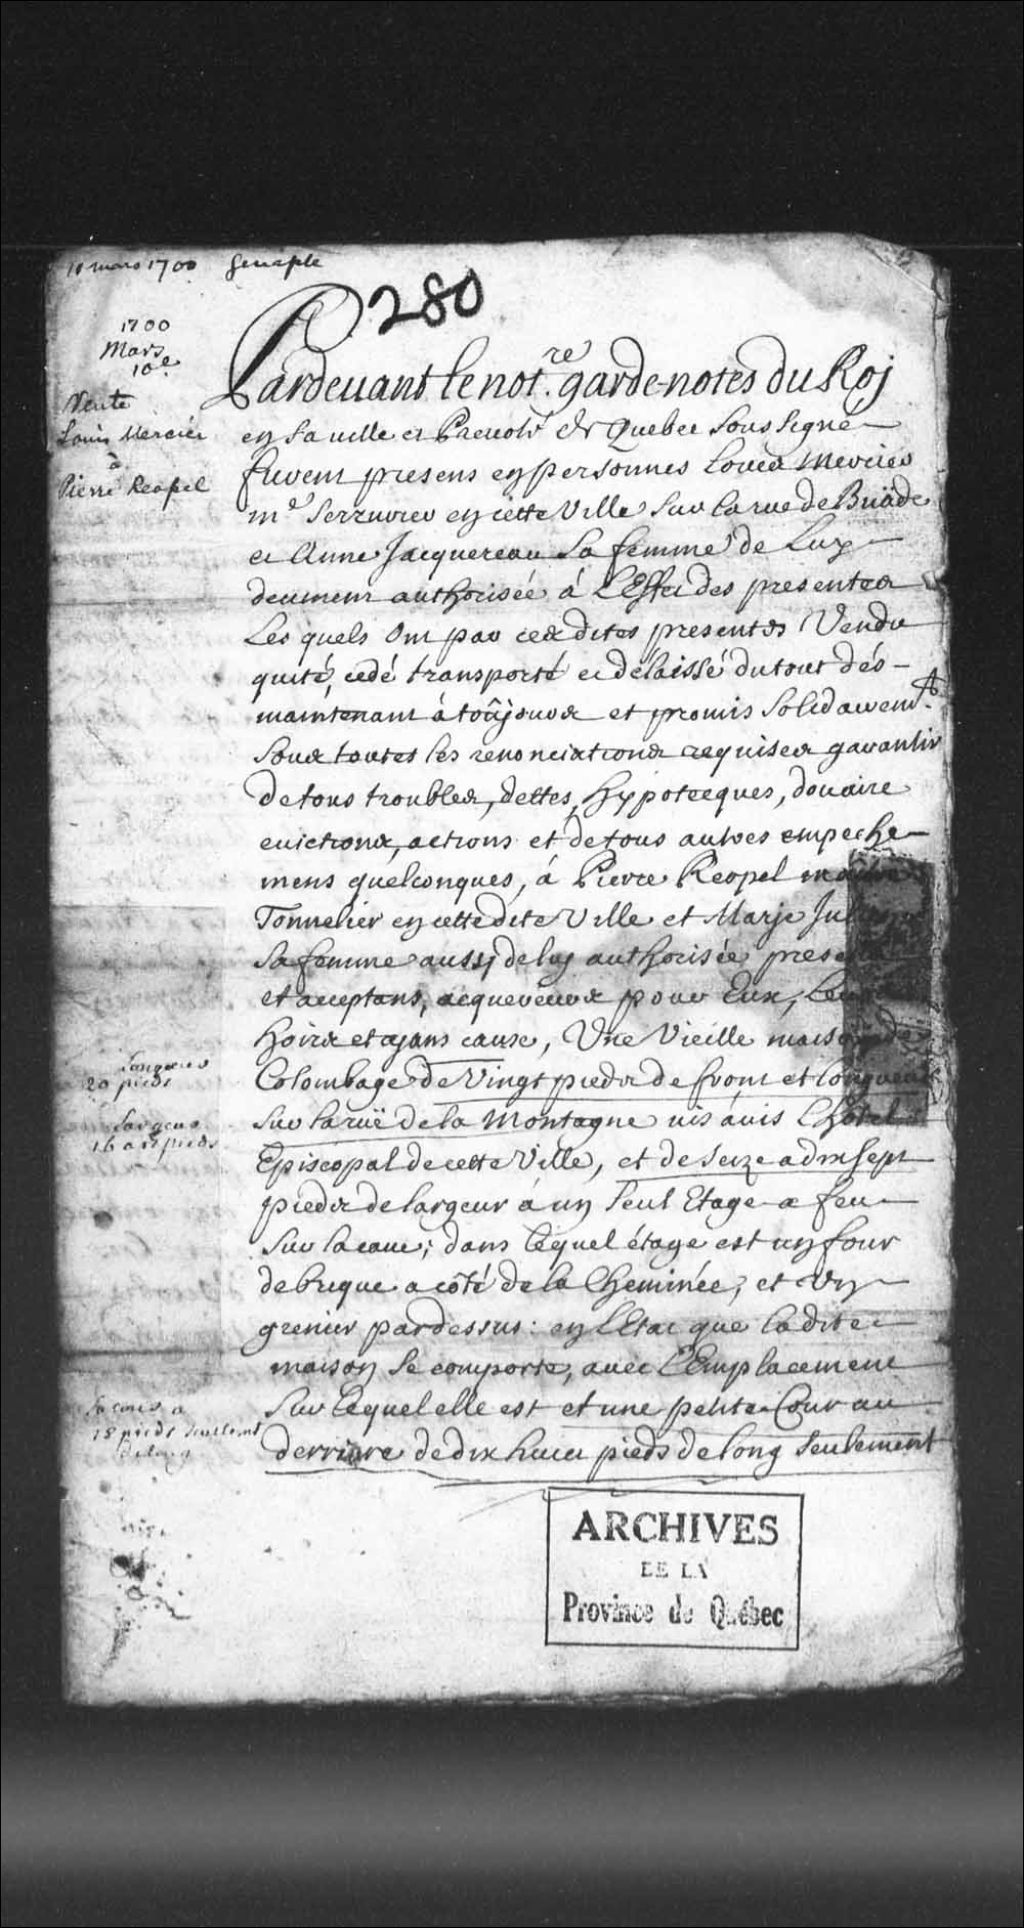 10 mars 1700 Genaple
280
1700
Mars
10e
Vente
Louis Mercier
à
Pierre Reopel
Pardeuant le notre. garde-notes du Roj
en sa uille et Preuosté de Quebec soussigné
furent presens en personnes Louis Mercier
me. Serrurier en cette Ville sur la rue de Buäde
et Anne Jacquereau sa femme de Luy
deument authorisée à l'Effet des presentes
Lesquels Ont par ces dites presentes Vendu
quité, cedé transporté et delaissé du tout dés-
maintenant à toûjours et promis solidairemt.
sous toutes les renonciations requises garantir
de tous troubles, dettes, hypotecques, douaire
euictions, actions et de tous autres empeche-
mens quelconques, à Pierre Reopel maître
Tonnelier en cette dite Ville et Marje
sa femme aussj de luy authorisée
et acceptans, acquereurs pour Eux, Leurs
hoirs et ajans cause, Une Vieille maison de
Colombage de Vingt pieds de front et longueur
sur la ruë de la Montagne uis àuis l'hotel
Episcopal de cette Ville, et de seize a dix sept
pieds de largeur à un seul Etage a feu
sur la caue; dans lequel étage est un four
de brique a côté de la Cheminée; et Un
grenier par dessus: en l'Etat que la dite
maison se comporte, auec l'Emplacement
sur lequel elle est et une petite Cour au
derriere de dix huit pieds de long seulement
longueur
20 pieds
largeur
16 a 17 pieds
la cour a
18 pieds seullemt
de long
ARCHIVES
DE LA
Province de Québec